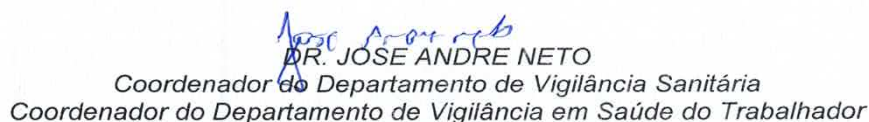 DR. JOSE ANDRE NETO
Coordenador do Departamento de Vigilância Sanitária
Coordenador do Departamento de Vigilância em Saúde do Trabalhador